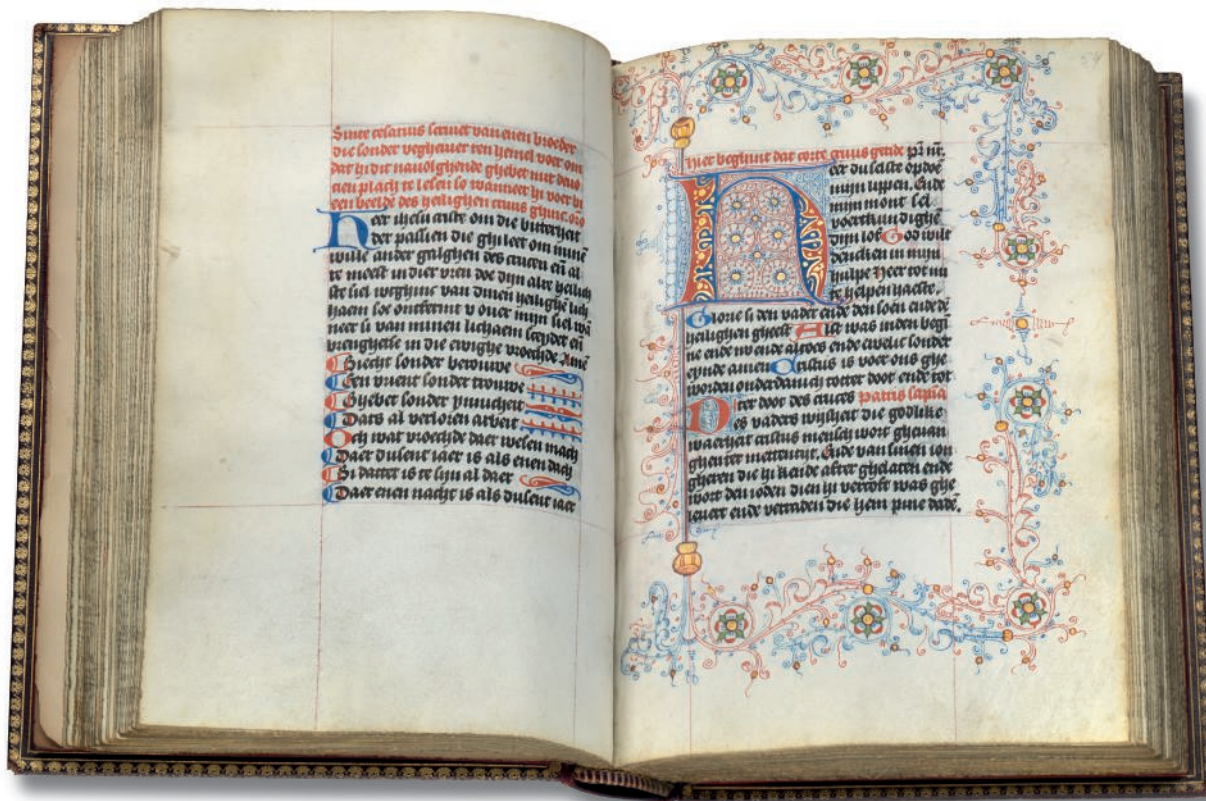 Sinte cesarius scrivet van enen broeder
die sonder vegheuer ten hemel voer om
dat hi dit navolghende ghebet mit devo
cien plach te lesen so wanneer hi voer bi
een beelde des heilighen cruus ghinc. oro
Heer ihesu criste om die bitterheit
der passien die ghi leet om minen
wille ander galghen des cruces en al
re meest in dier vren doe dijn alre heilich
ste siel weghinc van dinen heilighe lich
haem soe ontfermt v over mijn siel wan
neer si van minen lichaem sceydet en
brenghetse in die ewighe vroechde Amen
Biecht sonder berouwe
Een vrient sonder trouwe
Ghebet sonder ynnicheit
Dats al verloren arbeit
Och wat vroechde daer wesen mach
Daer dusent iaer is als enen dach
Bi dattet is te sijn al daer
Daer enen nacht is als dusent iaer
Hier beghint dat corte cruus getide
Heer du selste opdoe
mijn lippen. Ende
mijn mont sel
voertkundighe
dijn lof God wilt
dencken in mijn
hulpe Heer tot mi
te helpen haeste.
Glorie si den vader ende den soen ende de
heilighen gheest Alst was inden begi
ne ende nv ende altoes ende ewelic sonder
eynde amen Cristus is voer ons ghe
worden onderdanich totter doot ende tot
der doot des cruces Patris sapia
Des vaders wijsheit die godlike
waerheit cristus mensch wort ghevan
ghen ter mettentijt. Ende van sinen ion
gheren die hi kende after ghelaten ende
wort den ioden dien hi vercoft was ghe
levert ende verraden die hem pine dade.